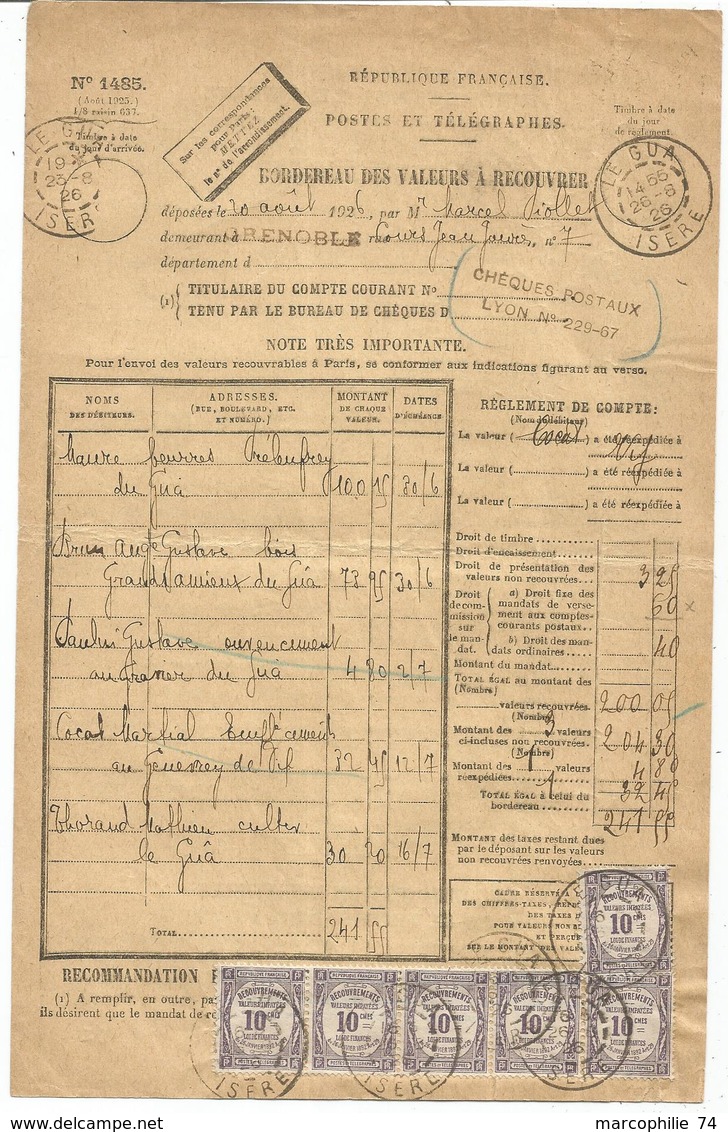 N° 1485.
(Août 1925.)
1/8 raisin 637.
Timbre à date
du jour d'arrivée.
LE GUA
19
23-8
26
ISERE
Sur les correspondances
pour Paris:
METTEZ
le n° de l'arrondissement.
RÉPUBLIQUE FRANÇAISE.
POSTES ET TÉLÉGRAPHES.
Timbre à date
du jour
de règlement.
LE GUA
26-8
26
ISERE
BORDEREAU DES VALEURS À RECOUVRER
déposées le 20 août 1926, par Mr Marcel Piollet
demeurant à GRENOBLE rue Cours Jean Jaurès, n° 7
département d
(1) TITULAIRE DU COMPTE COURANT N°
TENU PAR LE BUREAU DE CHÈQUES D
CHÈQUES POSTAUX
LYON No 229-67
NOTE TRÈS IMPORTANTE.
Pour l'envoi des valeurs recouvrables à Paris, se conformer aux indications figurant au verso.
NOMS
DES DÉBITEURS.
ADRESSES.
(RUE, BOULEVARD, ETC.
ET NUMÉRO.)
MONTANT
DE CHAQUE
VALEUR.
DATES
D'ÉCHÉANCE.
Maure beurres
du Guâ 100 15 30/6
Brun Ange Gustave bois
du Guâ 73 95 30/6
Gustave
au Gravier du Guâ 4 80 2/7
Cocat Martial
au Genevrey de Vif 32 45 12/7
Thorand Mathieu
le Guâ 30 20 16/7
TOTAL 241 55
RÈGLEMENT DE COMPTE:
(Nom du débiteur)
La valeur ( Cocat ) a été réexpédiée à Vif
La valeur ( ) a été réexpédiée à
La valeur ( ) a été réexpédiée à
Droit de timbre
Droit d'encaissement
Droit de présentation des
valeurs non recouvrées 3 25
Droit de commission sur le mandat.
a) Droit fixe des
mandats de versement aux comptes-
courants postaux 60 x
b) Droit des mandats ordinaires 40
Montant du mandat
TOTAL ÉGAL au montant des
(Nombre)
valeurs recouvrées 200 05
(Nombre)
Montant des 3 valeurs
ci-incluses non recouvrées 204 30
(Nombre)
Montant des 1 valeurs
réexpédiées 4 80
32 45
TOTAL ÉGAL à celui du
bordereau 241 55
MONTANT des taxes restant dues
par le déposant sur les valeurs
non recouvrées renvoyées
CADRE RÉSERVÉ À
DES CHIFFRES-TAXES,
DES TAXES D
POUR VALEURS NON
ET PERÇUE
SUR LE MONTANT DES VALE
RECOMMANDATION
(1) A remplir, en outre,
ils désirent que le mandat de
REPUBLIQUE FRANÇAISE
RECOUVREMENTS
VALEURS IMPAYEES
10 CMES
LOI DE FINANCES
POSTES ET TELEGRAPHES
REPUBLIQUE FRANÇAISE
RECOUVREMENTS
VALEURS IMPAYEES
10 CMES
LOI DE FINANCES
POSTES ET TELEGRAPHES
REPUBLIQUE FRANÇAISE
RECOUVREMENTS
VALEURS IMPAYEES
10 CMES
LOI DE FINANCES
POSTES ET TELEGRAPHES
RECOUVREMENTS
VALEURS IMPAYEES
10 CMES
LOI DE FINANCES
POSTES ET TELEGRAPHES
RECOUVREMENTS
VALEURS IMPAYEES
10 CMES
LOI DE FINANCES
RECOUVREMENTS
VALEURS IMPAYEES
10 CMES
LOI DE FINANCES
POSTES ET TELEGRAPHES
ISERE
ISERE
ISERE
marcophilie 74